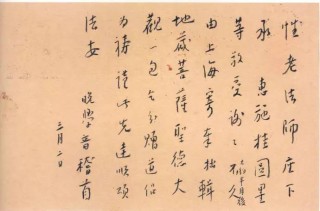 性老法師座下
承惠施桂圓里
等敬受謝謝不久
由上海寄奉拙輯
地藏菩薩聖德大
觀一包乞分贈道侶
為禱謹此先達順頌
法安
晚學音稽首
三月二日